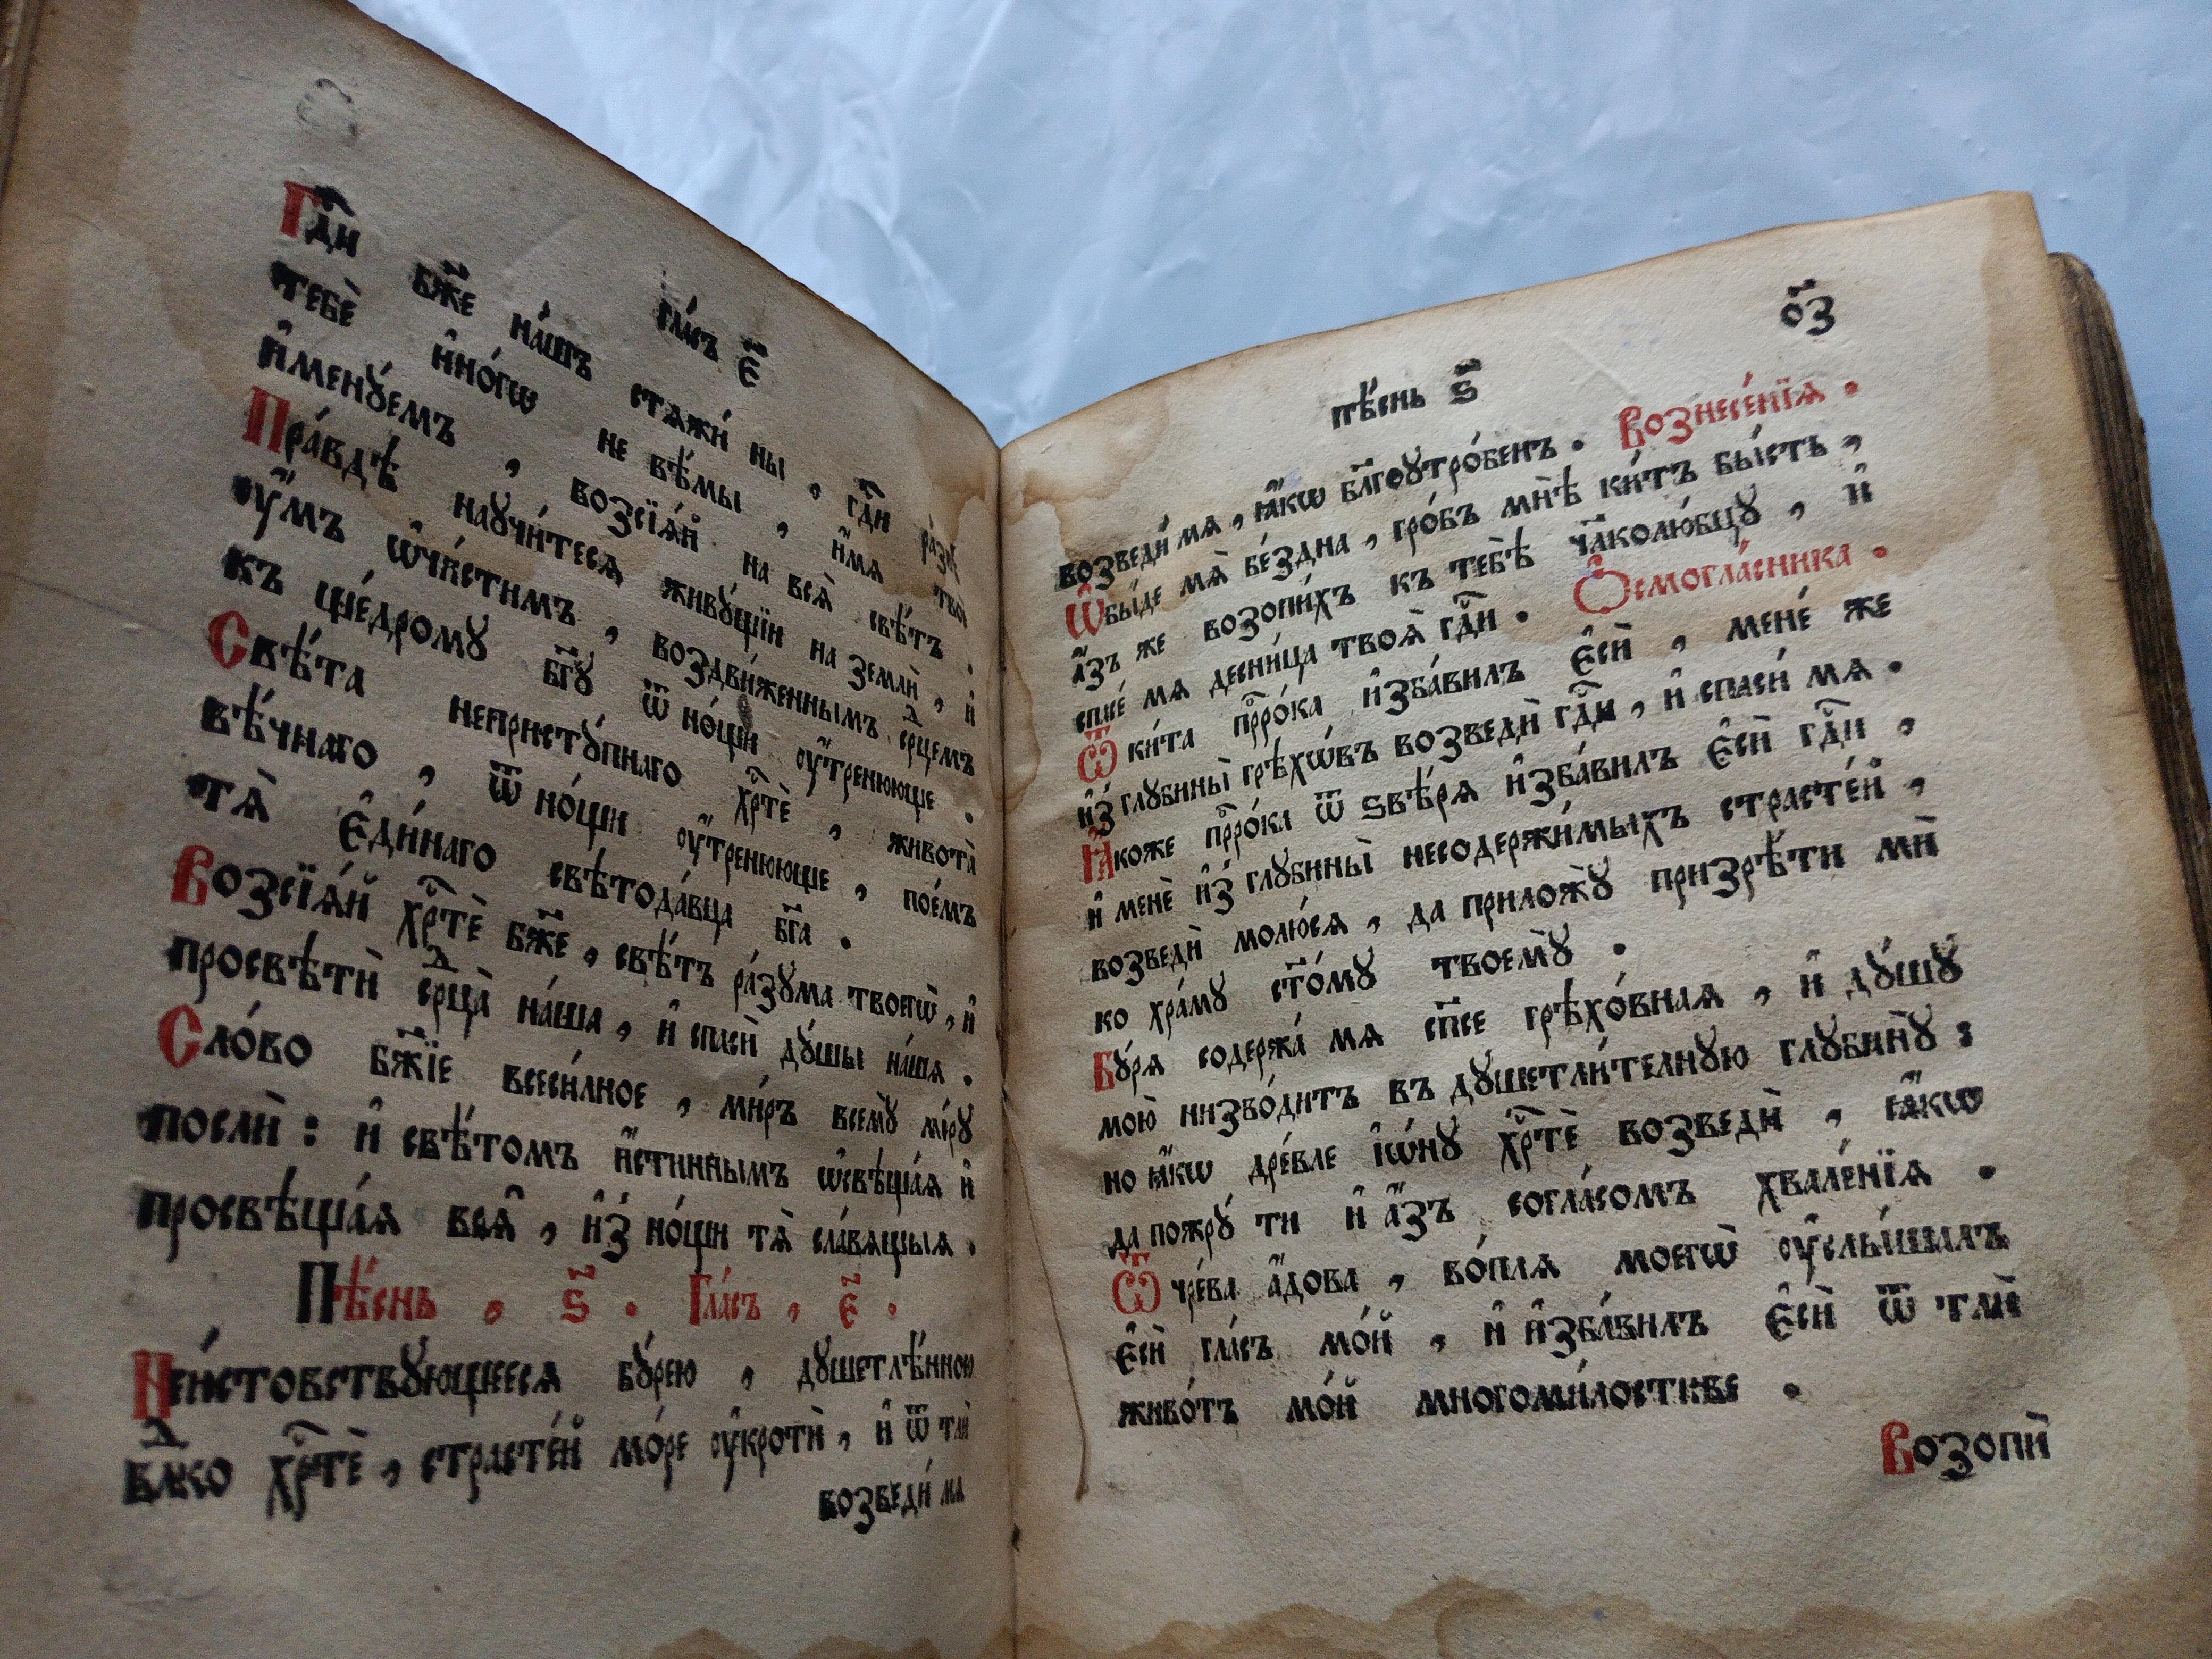 гла́съ є҃
Гдⷭ҇и бж҃е на́шъ стѧжи́ ны , гдⷭ҇и ра́звѣ
тебѐ и҆но́гѡ не вѣ́мы , и҆́мѧ твоѐ
и҆менꙋ́емъ , возсїѧ́й на всѧ̀ свѣ́тъ .
Пра́вдѣ наꙋчи́тесѧ живꙋ́щїи на землѝ , и҆
ᲂу҆́мъ ѡ҆чи́стимъ , воздви́женнымъ срⷣцемъ
къ щедромꙋ бг҃ꙋ ѿ но́щи ᲂу҆́тренююще .
Свѣ́та непристꙋ́пнаго хрⷭ҇тѐ , живота̀
вѣ́чнаго , ѿ но́щи ᲂу҆́тренююще , пое́мъ
тѧ̀ є҆ди́наго свѣтода́вца бг҃а .
Возсїѧ́й хрⷭ҇тѐ бж҃е , свѣ́тъ ра́зꙋма твоегѡ̀ , и҆
просвѣтѝ срⷣца̀ на́ша , и҆ спасѝ дꙋ́шы на́шѧ .
Сло́во бж҃їе всеси́лное , ми́ръ всемꙋ̀ мі́рꙋ
послѝ : и҆ свѣ́томъ и҆́стиннымъ ѡ҆свѣща́ѧ и҆
просвѣща́ѧ всѧ̑ , и҆з̾ но́щи тѧ̀ сла́вѧщыѧ .
Пѣ́снь , ѕ҃ . Гла́съ , є҃ .
Неи́стовствꙋющеесѧ бꙋ́рею , дꙋшетлѣ́нною
влⷣко хрⷭ҇тѐ , страсте́й мо́ре ᲂу҆кротѝ , и҆ ѿ тлѝ
возведи́ мѧ
пѣ́снь ѕ҃
о҃з
возведи́ мѧ , ꙗ҆́кѡ бл҃гоꙋтро́бенъ . Вознесе́нїѧ .
Ѡ҆бы́де мѧ̀ бе́здна , гро́бъ мнѣ̀ ки́тъ бы́сть ,
а҆́зъ же возопи́хъ къ тебѣ̀ чл҃колю́бцꙋ , и҆
спсе́ мѧ десни́ца твоѧ̀ гдⷭ҇и . Ѻ҆смогла́сника .
Ѿ ки́та прⷪ҇ро́ка и҆зба́вилъ є҆сѝ , мене́ же
и҆з̾ глꙋбины̀ грѣхѡ́въ возведѝ гдⷭ҇и , и҆ спаси́ мѧ .
Ꙗ҆́коже прⷪ҇ро́ка ѿ ѕвѣ́рѧ и҆зба́вилъ є҆сѝ гдⷭ҇и ,
и҆ менѐ и҆з̾ глꙋбины̀ несодержи́мыхъ страсте́й ,
возведѝ молю́сѧ , да приложꙋ̀ призрѣ́ти мѝ
ко хра́мꙋ ст҃о́мꙋ твоемꙋ̀ .
Бꙋ́рѧ содержа́ мѧ сп҃се грѣхо́внаѧ , и҆ дꙋ́шꙋ
мою̀ низво́дитъ въ дꙋшетли́телнꙋю глꙋбинꙋ̀ :
но ꙗ҆́кѡ дре́вле і҆ѡ́нꙋ хрⷭ҇тѐ возведѝ , ꙗ҆́кѡ
да пожрꙋ́ ти и҆ а҆́зъ согла́сомъ хвале́нїѧ .
Ѿ чре́ва а҆́дова , во́плѧ моегѡ̀ ᲂу҆слы́шалъ
є҆сѝ гла́съ мо́й , и҆ и҆зба́вилъ є҆сѝ ѿ тлѝ
живо́тъ мо́й многоми́лостиве .
Возопѝ